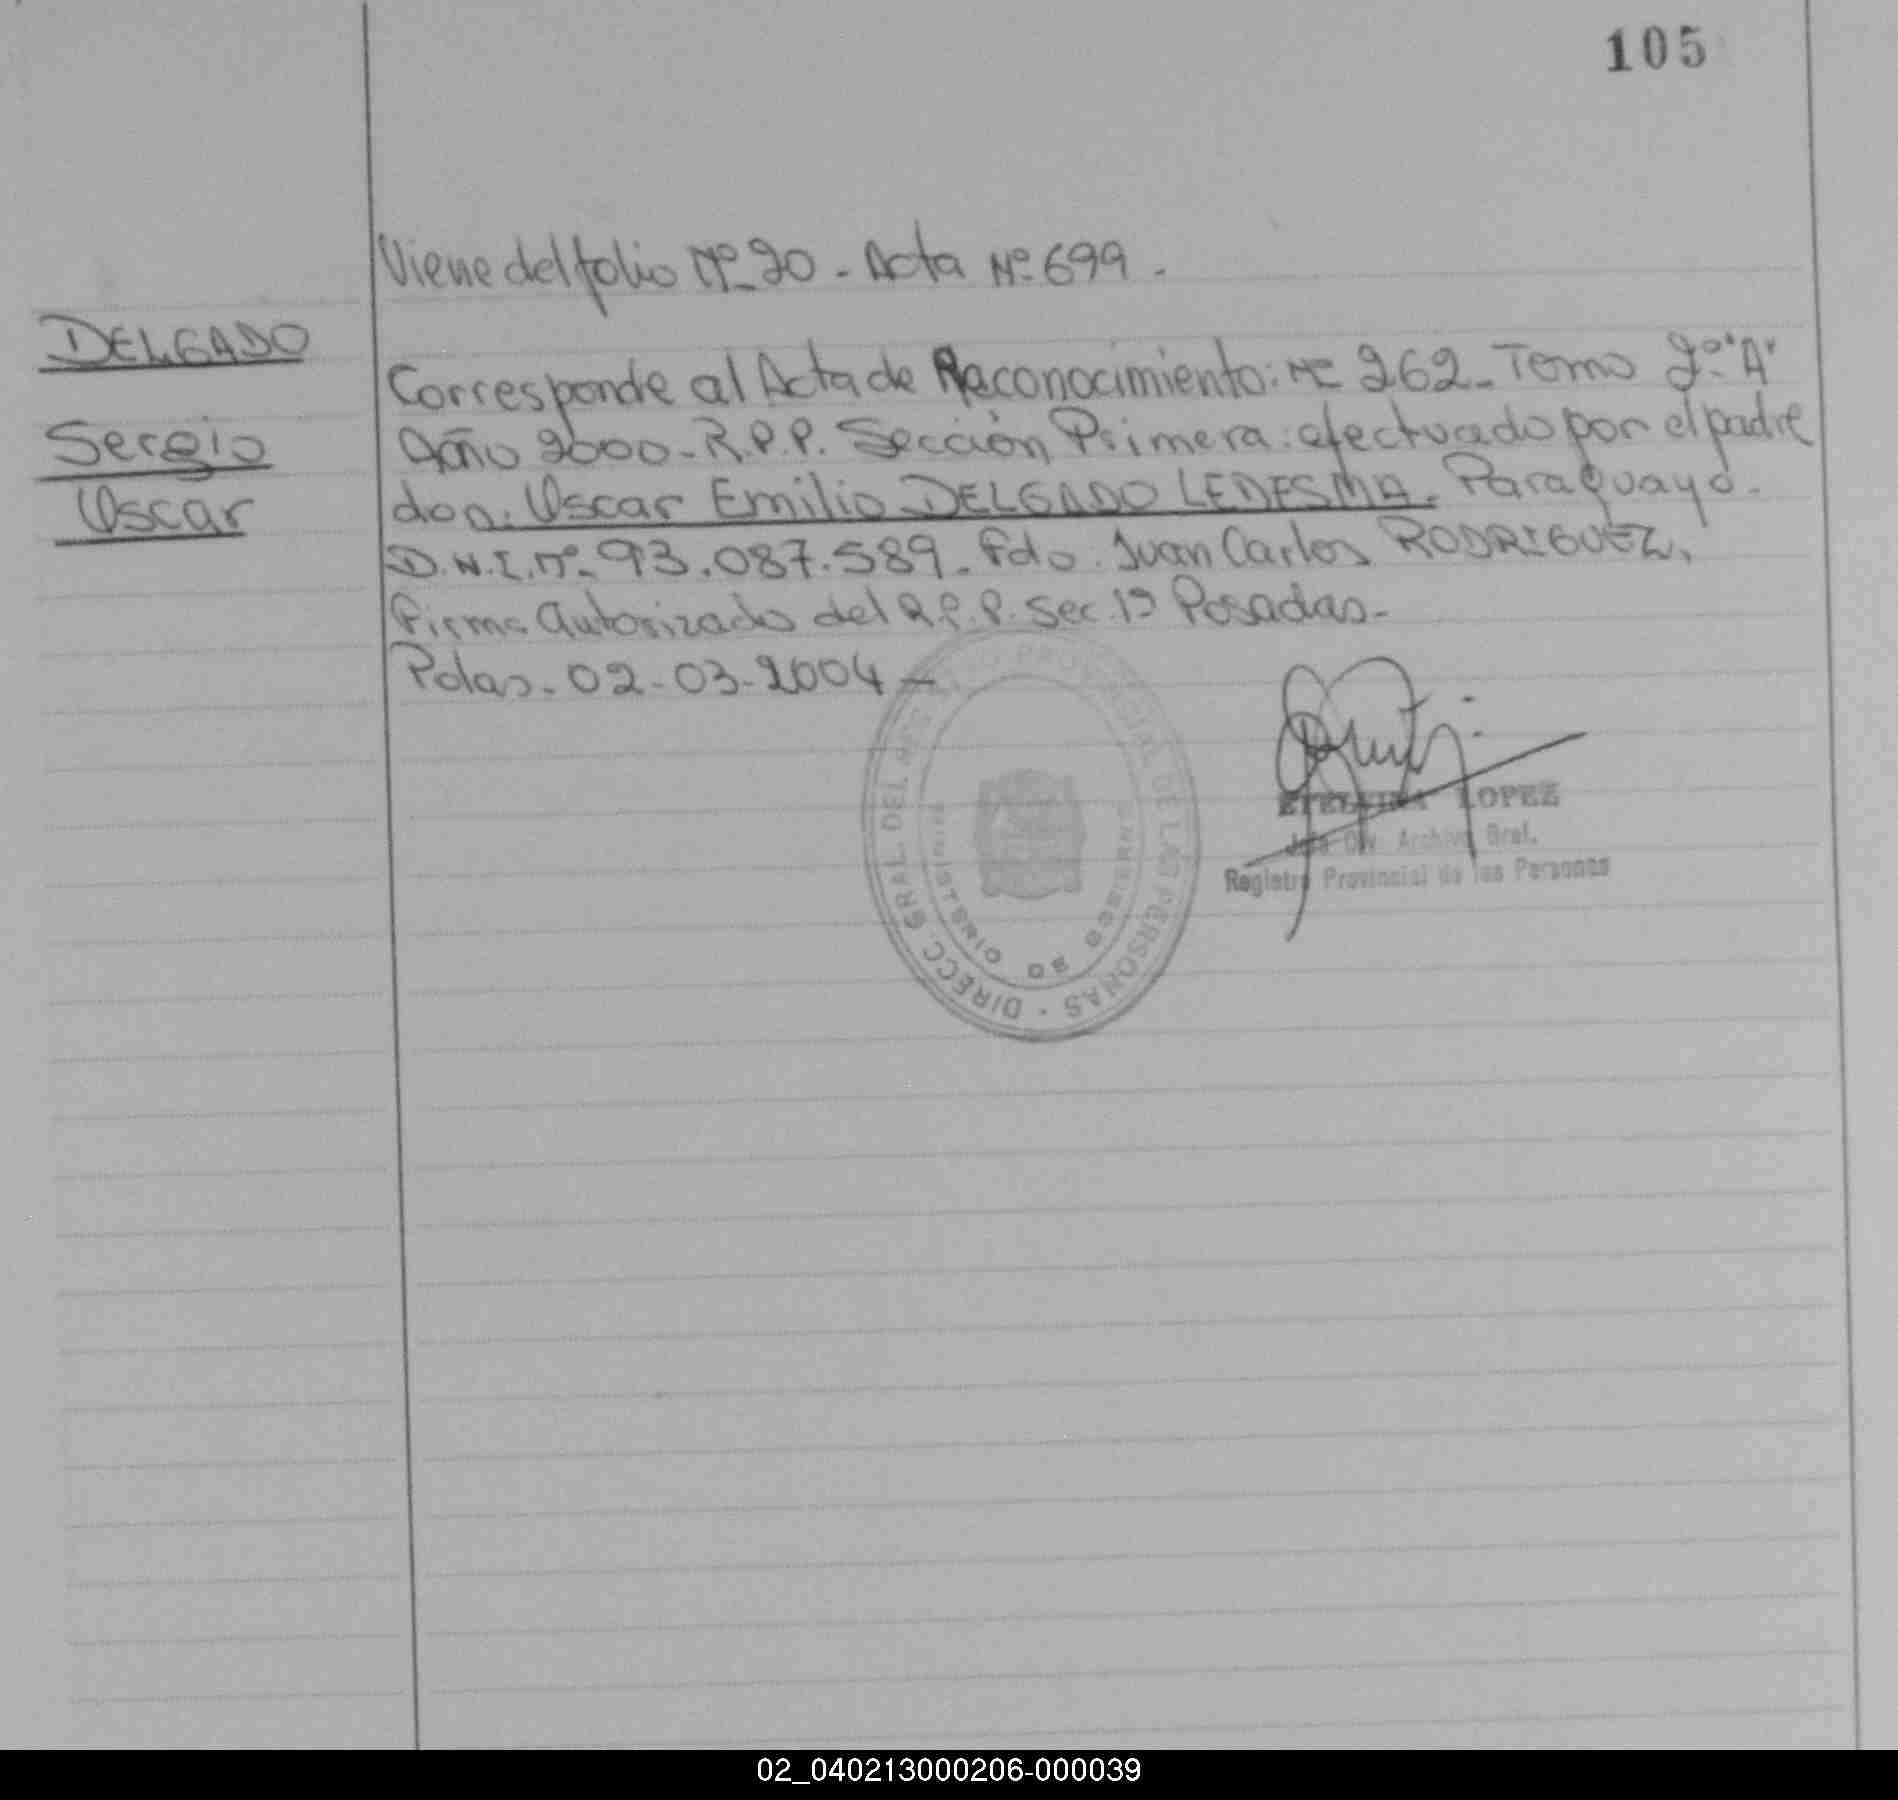 105
Viene del folio Nº 20 - Acta Nº 699 -
DELGADO
Sergio
Oscar
Corresponde al Acta de Reconocimiento: Nº 262 - Tomo 2º "A"
Año 2000 - R.P.P. Sección Primera: efectuado por el padre
don: Oscar Emilio DELGADO LEDESMA. Paraguayo.
D.N.I. Nº 93.087.589. Fdo. Juan Carlos RODRIGUEZ,
Firma Autorizado del R.P.P. Sec. 1ª Posadas-
Pdas. 02-03-2004-
LOPEZ
Jefa Div. Archivo Gral.
Registro Provincial de las Personas
DIRECC GRAL. DEL REGISTRO PROVINCIAL DE LAS PERSONAS -
MINISTERIO DE GOBIERNO
02_040213000206-000039